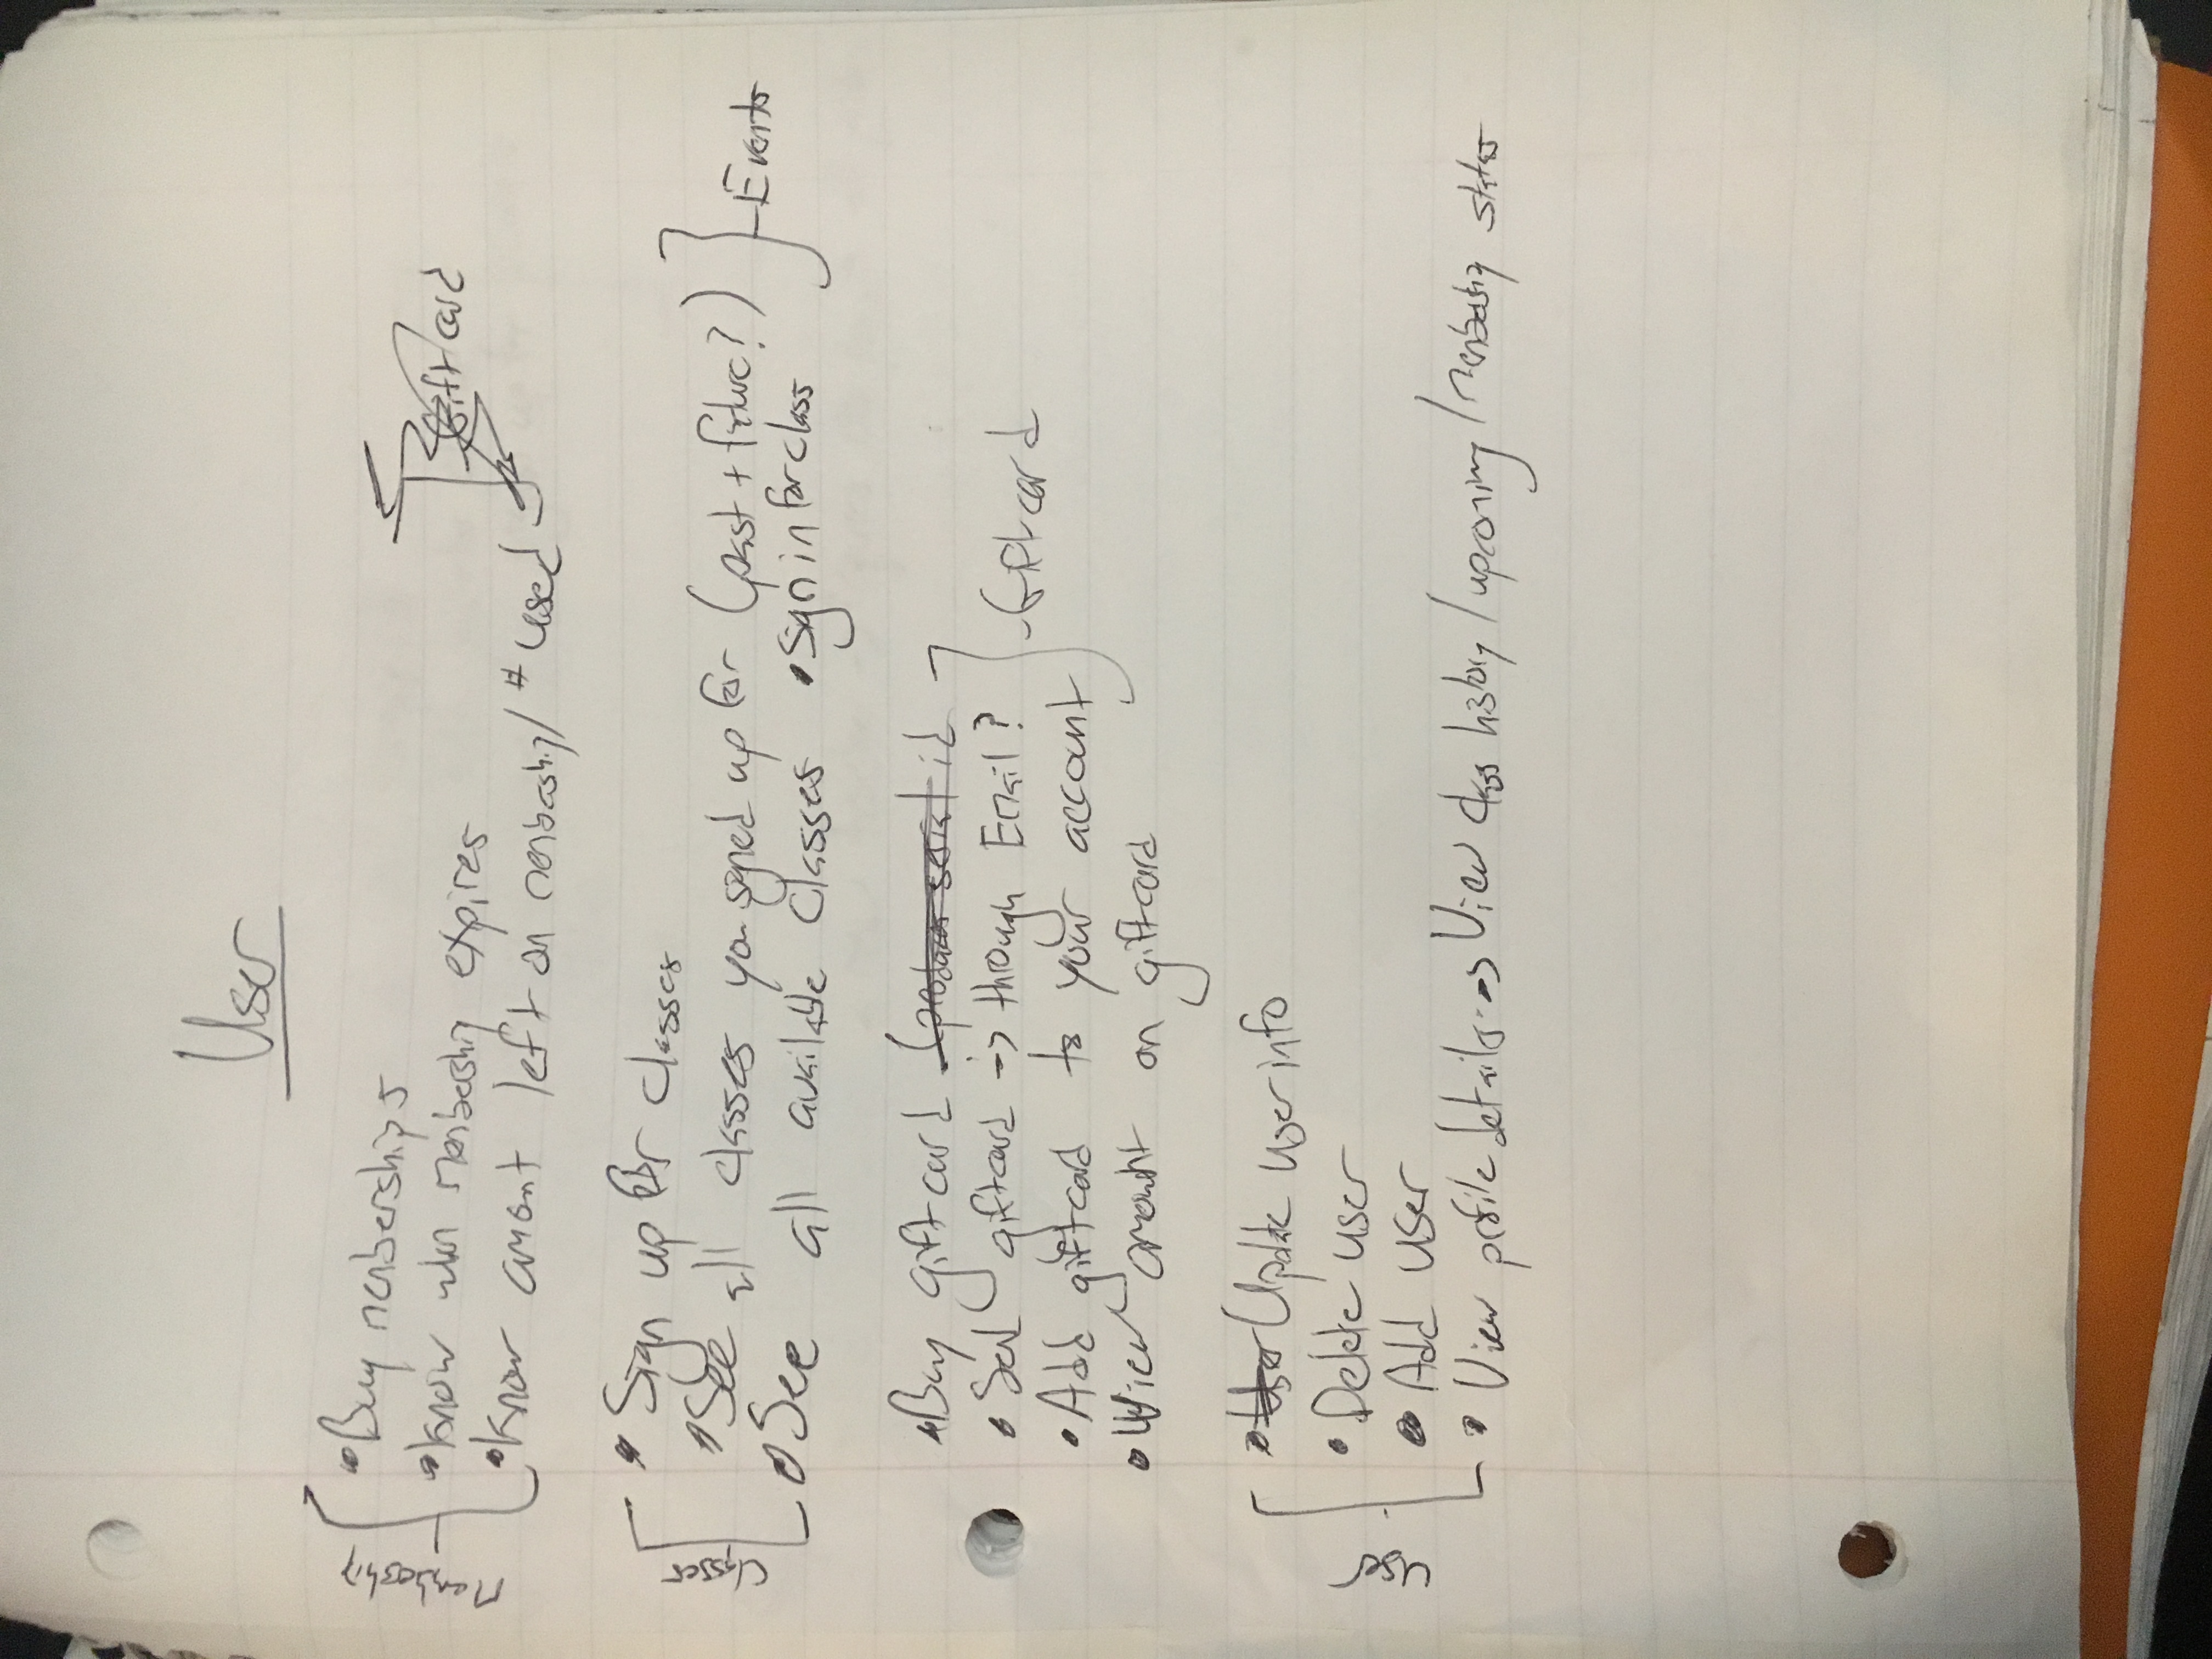 User
Membership
• Buy memberships
• Know when membership expires
Giftcard
• Know amount left on membership / # used
Classes
• Sign up for classes
• See all classes you signed up for (past + future?)
Events
• See all available classes • Sign in for class
• Buy giftcard (produces serial id
• Send giftcard -> through Email?
Giftcard
• Add giftcard to your account
• View amount on giftcard
User
• User Update user info
• Delete user
• Add user
• View profile details -> View class history / upcoming / membership status